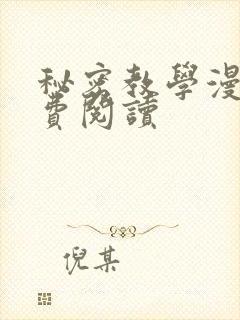 秘密教學漫
費閱讀
倪某